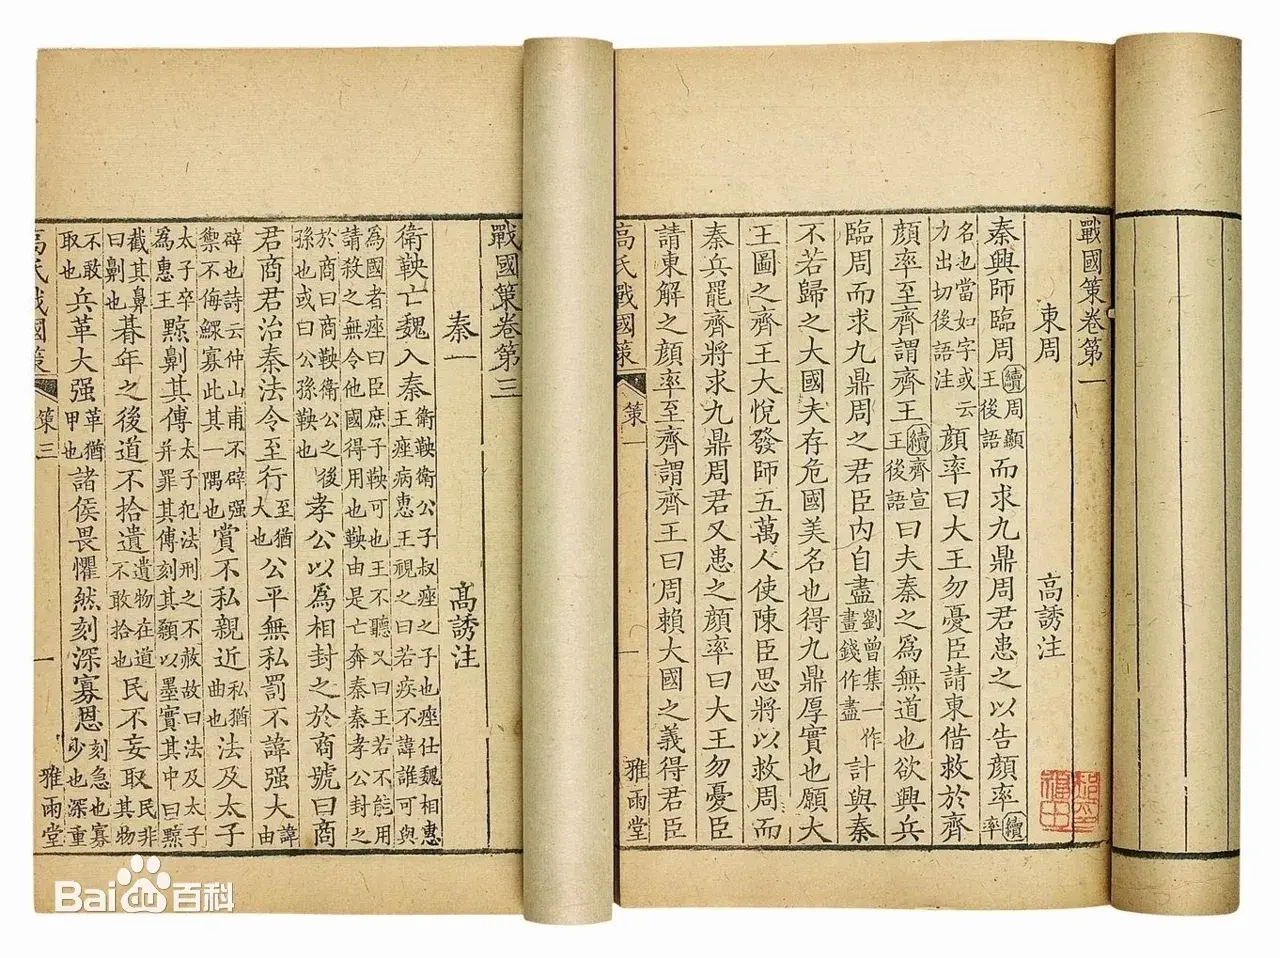 戰國策卷第一
東周 高誘注
秦興師臨周續周顯王後語而求九鼎周君患之以告顏率續率
名也當如字或云力出切後語注顏率曰大王勿憂臣請東借救於齊
顏率至齊謂齊王續齊宣王後語曰夫秦之爲無道也欲興兵
臨周而求九鼎周之君臣內自盡劉曾集一作畫錢作盡計與秦
不若歸之大國夫存危國美名也得九鼎厚實也願大
王圖之齊王大悅發師五萬人使陳臣思將以救周而
秦兵罷齊將求九鼎周君又患之顏率曰大王勿憂臣
請東解之顏率至齊謂齊王曰周賴大國之義得君臣
高氏戰國策 策一 一 雅雨堂
戰國策卷第三
秦一 高誘注
衛鞅亡魏入秦衛鞅衛公子叔痤之子也痤仕魏相惠王痤病惠王視之曰若疾不諱誰可與
爲國者痤曰臣庶子鞅可也王不聽又曰王若不能用請殺之無令他國得用也鞅由是亡奔秦秦孝公封之
於商曰商鞅衛公之後孫也或曰公孫鞅也孝公以爲相封之於商號曰商
君商君治秦法令至行至猶大也公平無私罰不諱强大諱由
辟也詩云仲山甫不辟强禦不侮鰥寡此其一隅也賞不私親近私猶曲也法及太子
太子卒爲惠王黥劓其傅太子犯法刑之不赦故曰法及太子并罪其傅刻其顙以墨實其中曰黥
截其鼻曰劓也朞年之後道不拾遺遺物在道不敢拾也民不妄取民非其物
不敢取也兵革大强革猶甲也諸侯畏懼然刻深寡恩刻急也寡少也深重
高氏戰國策 策三 一 雅雨堂
Bai百科